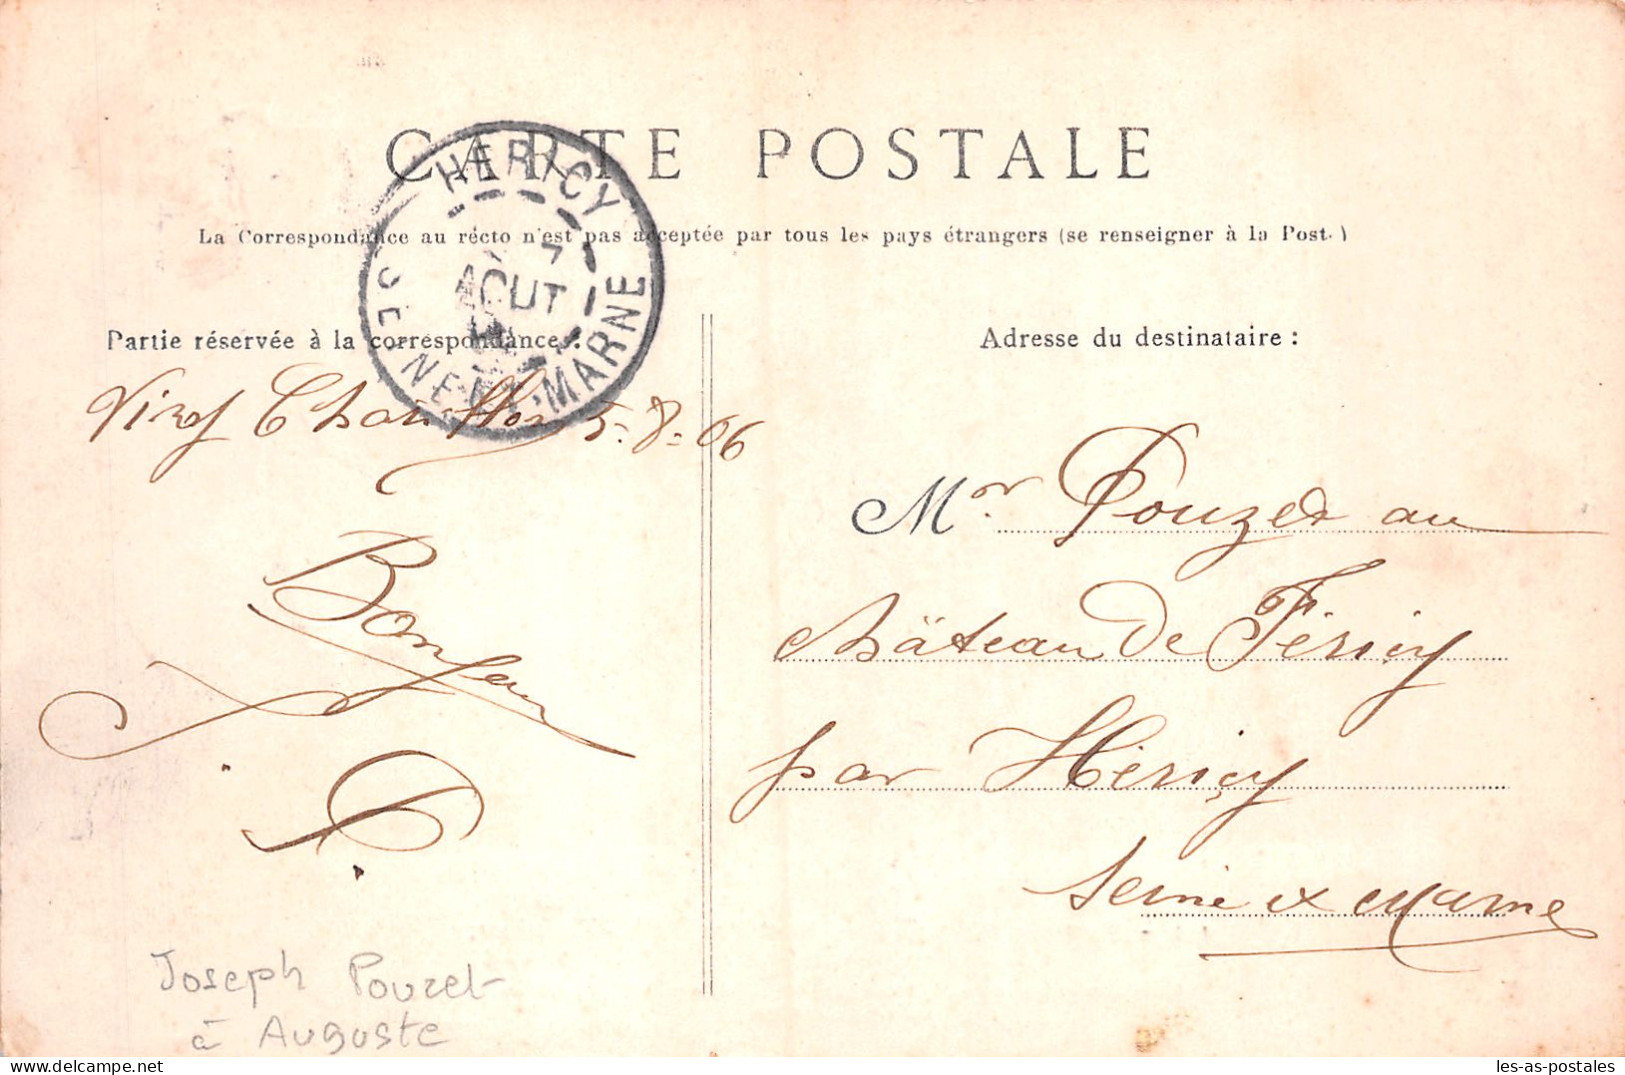 CARTE POSTALE
La Correspondance au recto n'est pas acceptée par tous les pays étrangers (se renseigner à la Post.)
HERICY
7
AOUT
SEINE-ET-MARNE
Partie réservée à la correspondance:
Adresse du destinataire:
Viry Chatillon 5-8-06
Mr. Pouzet au
château de Féricy
par Héricy
Seine et Marne
Joseph Pouzet
à Auguste
les-as-postales